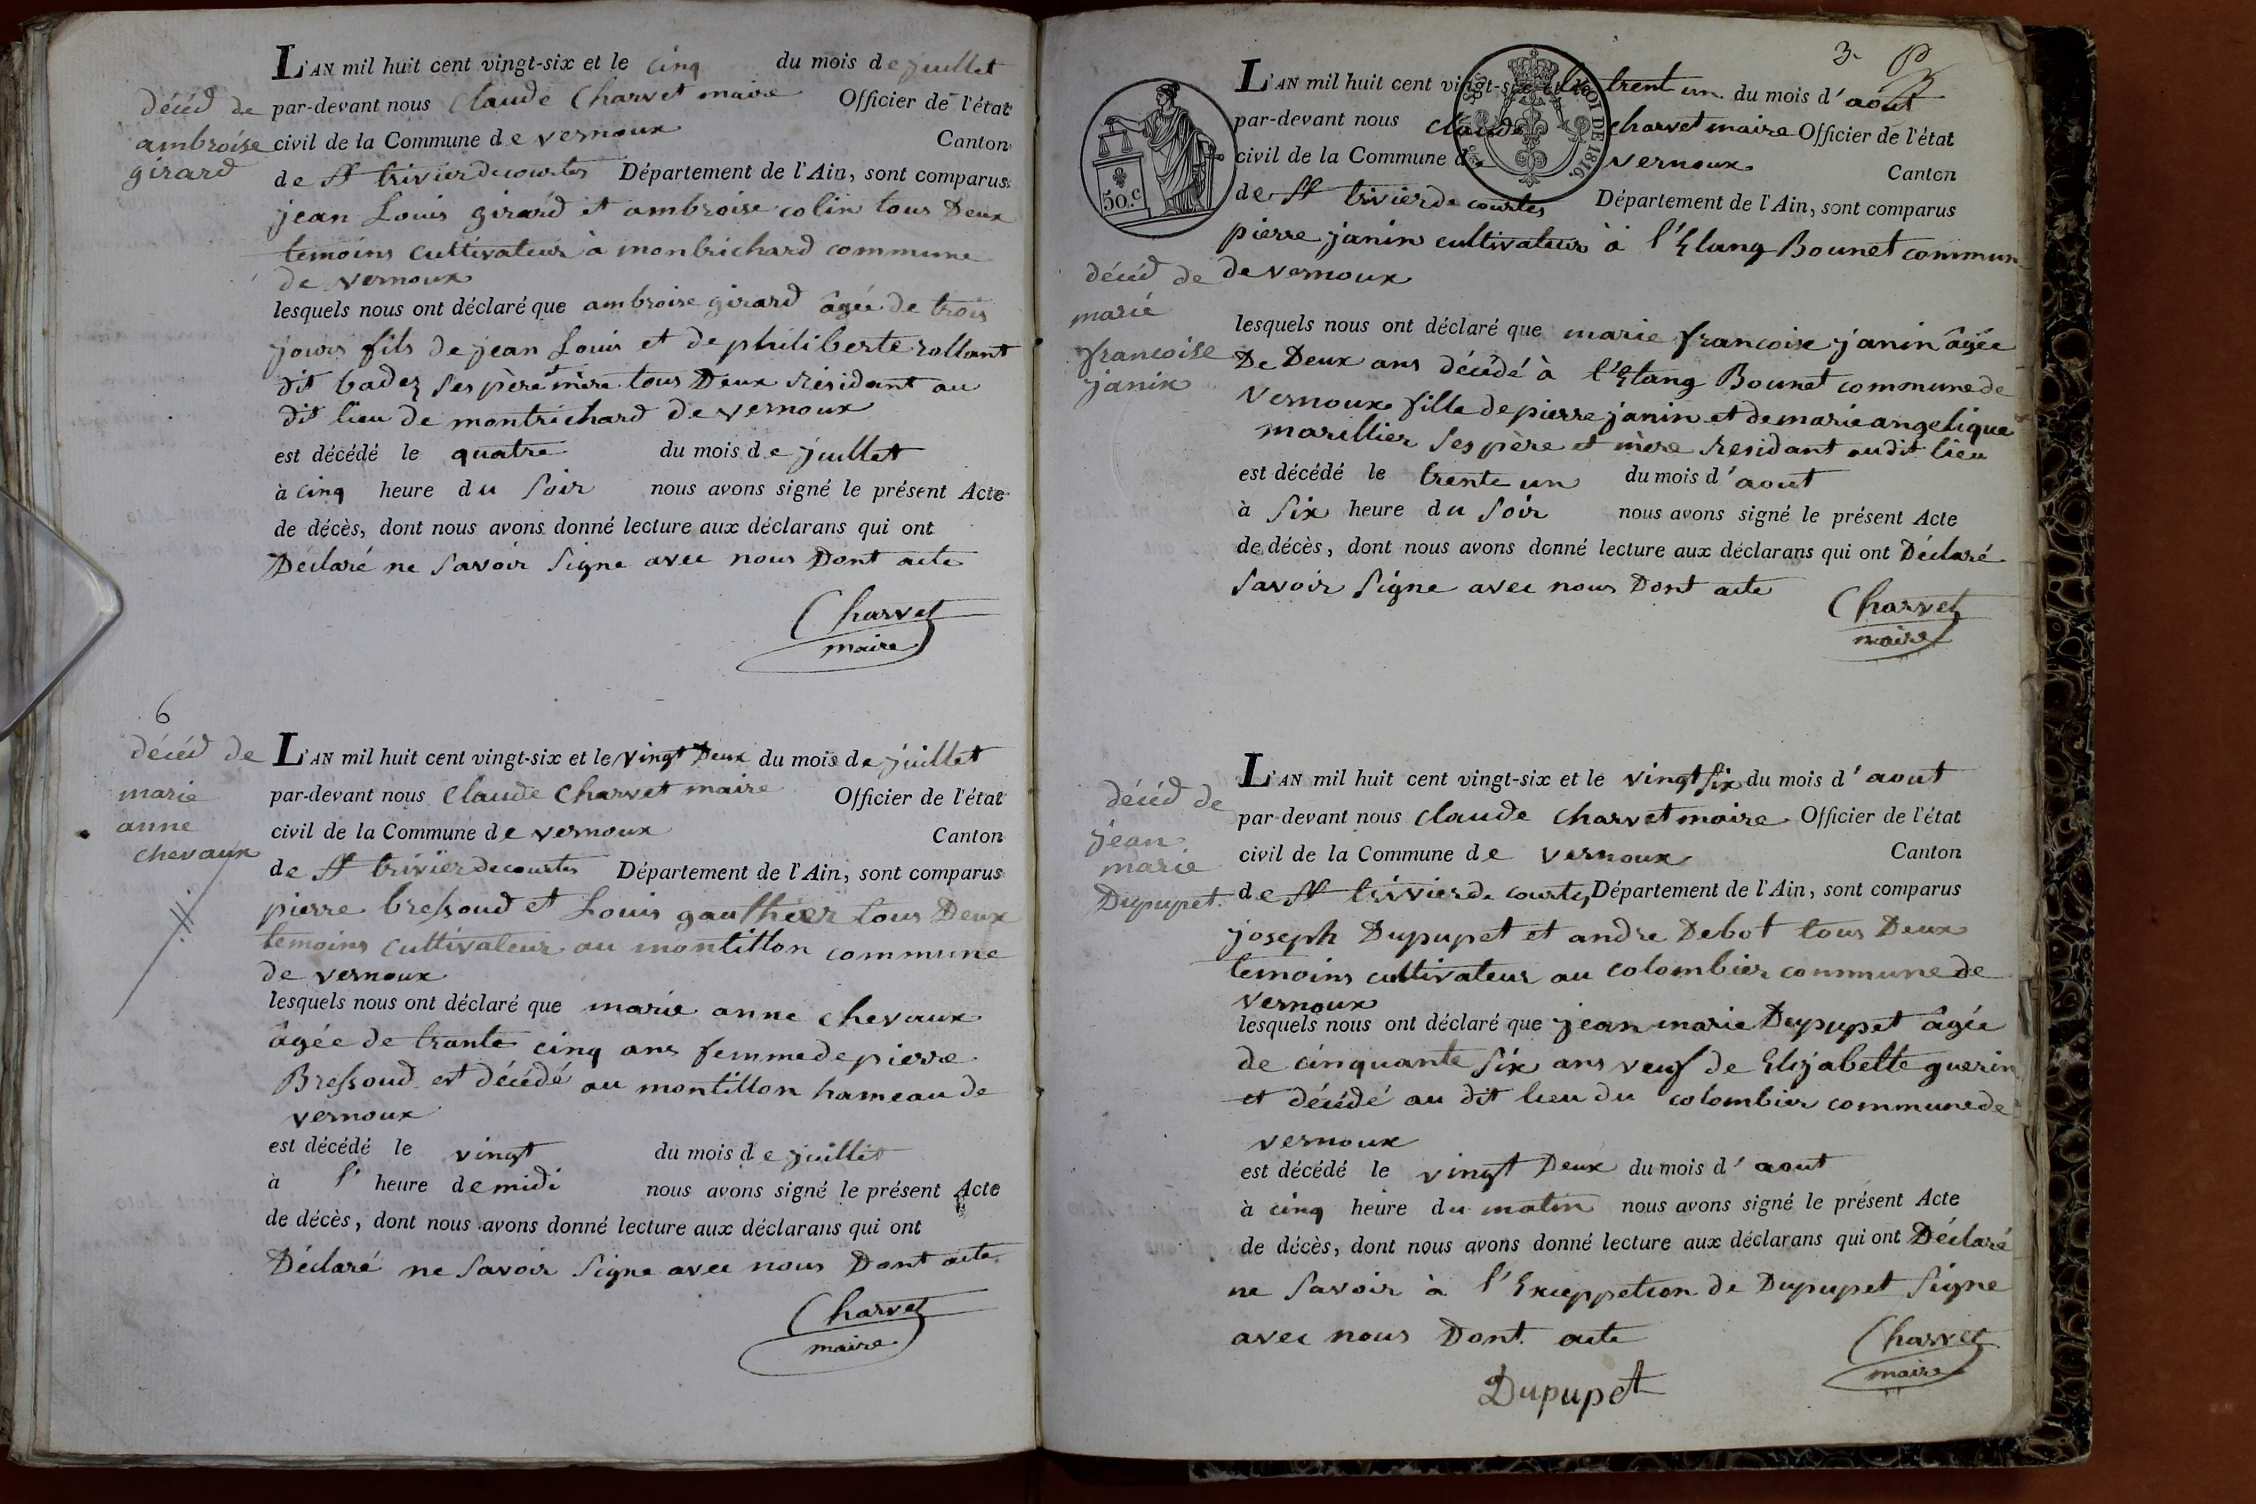 décéd de
ambroise
girard
L'AN mil huit cent vingt-six et le cinq du mois de juillet
par-devant nous Claude Charvet maire Officier de l'état
civil de la Commune de vernoux Canton
de St trivier de courtes Département de l'Ain, sont comparus
jean Louis girard et ambroise colin tous Deux
temoins cultivateur à montrichard commune
de vernoux
lesquels nous ont déclaré que ambroise girard âgée de trois
jours fils de jean Louis et de philiberte rollant
dit badez ses père et mère tous Deux résidant au
dit lieu de montrichard de vernoux
est décédé le quatre du mois de juillet
à cinq heure du soir nous avons signé le présent Acte
de décès, dont nous avons donné lecture aux déclarans qui ont
Déclaré ne savoir signe avec nous Dont acte
Charvet
maire
6
décéd de
marie
anne
chevaux
L'AN mil huit cent vingt-six et le vingt Deux du mois de juillet
par-devant nous Claude Charvet maire Officier de l'état
civil de la Commune de vernoux Canton
de St trivier de courtes Département de l'Ain, sont comparus
pierre bressoud et Louis gauthier tous Deux
temoins cultivateur au montillon commune
de vernoux
lesquels nous ont déclaré que marie anne chevaux
âgée de trante cinq ans femme de pierre
Bressoud est décédé au montillon hameau de
vernoux
est décédé le vingt du mois de juillet
à l' heure de midi nous avons signé le présent Acte
de décès, dont nous avons donné lecture aux déclarans qui ont
Déclaré ne savoir signe avec nous Dont acte
Charvet
maire
3
50.c
ROI DE 1816.
décéd de
marie
francoise
janin
L'AN mil huit cent vingt-six et le trent un du mois d'aout
par-devant nous claude charvet maire Officier de l'état
civil de la Commune de vernoux Canton
de St trivier de courtes Département de l'Ain, sont comparus
pierre janin cultivateur à l'Etang Bounet commun
de vernoux
lesquels nous ont déclaré que marie francoise janin âgée
De Deux ans décédé à l'Etang Bounet commune de
vernoux fille de pierre janin et de marie angelique
marillier ses père et mère residant audit lieu
est décédé le trente un du mois d'aout
à six heure du soir nous avons signé le présent Acte
de décès, dont nous avons donné lecture aux déclarans qui ont Déclaré
savoir signe avec nous Dont acte
Charvet
maire
décéd de
jean
marie
Dupupet.
L'AN mil huit cent vingt-six et le vingt six du mois d'aout
par-devant nous claude charvet maire Officier de l'état
civil de la Commune de vernoux Canton
de St trivier de courtes Département de l'Ain, sont comparus
joseph Dupupet et andre Debot tous Deux
temoins cultivateur au colombier commune de
vernoux
lesquels nous ont déclaré que jean marie Dupupet âgée
de cinquante six ans veuf de Elizabette guerin
et décédé au dit lieu du colombier commune de
vernoux
est décédé le vingt Deux du mois d'aout
à cinq heure du matin nous avons signé le présent Acte
de décès, dont nous avons donné lecture aux déclarans qui ont Déclaré
ne savoir à l'Exceppetion de Dupupet signe
avec nous Dont acte
Charvet
maire
Dupupet